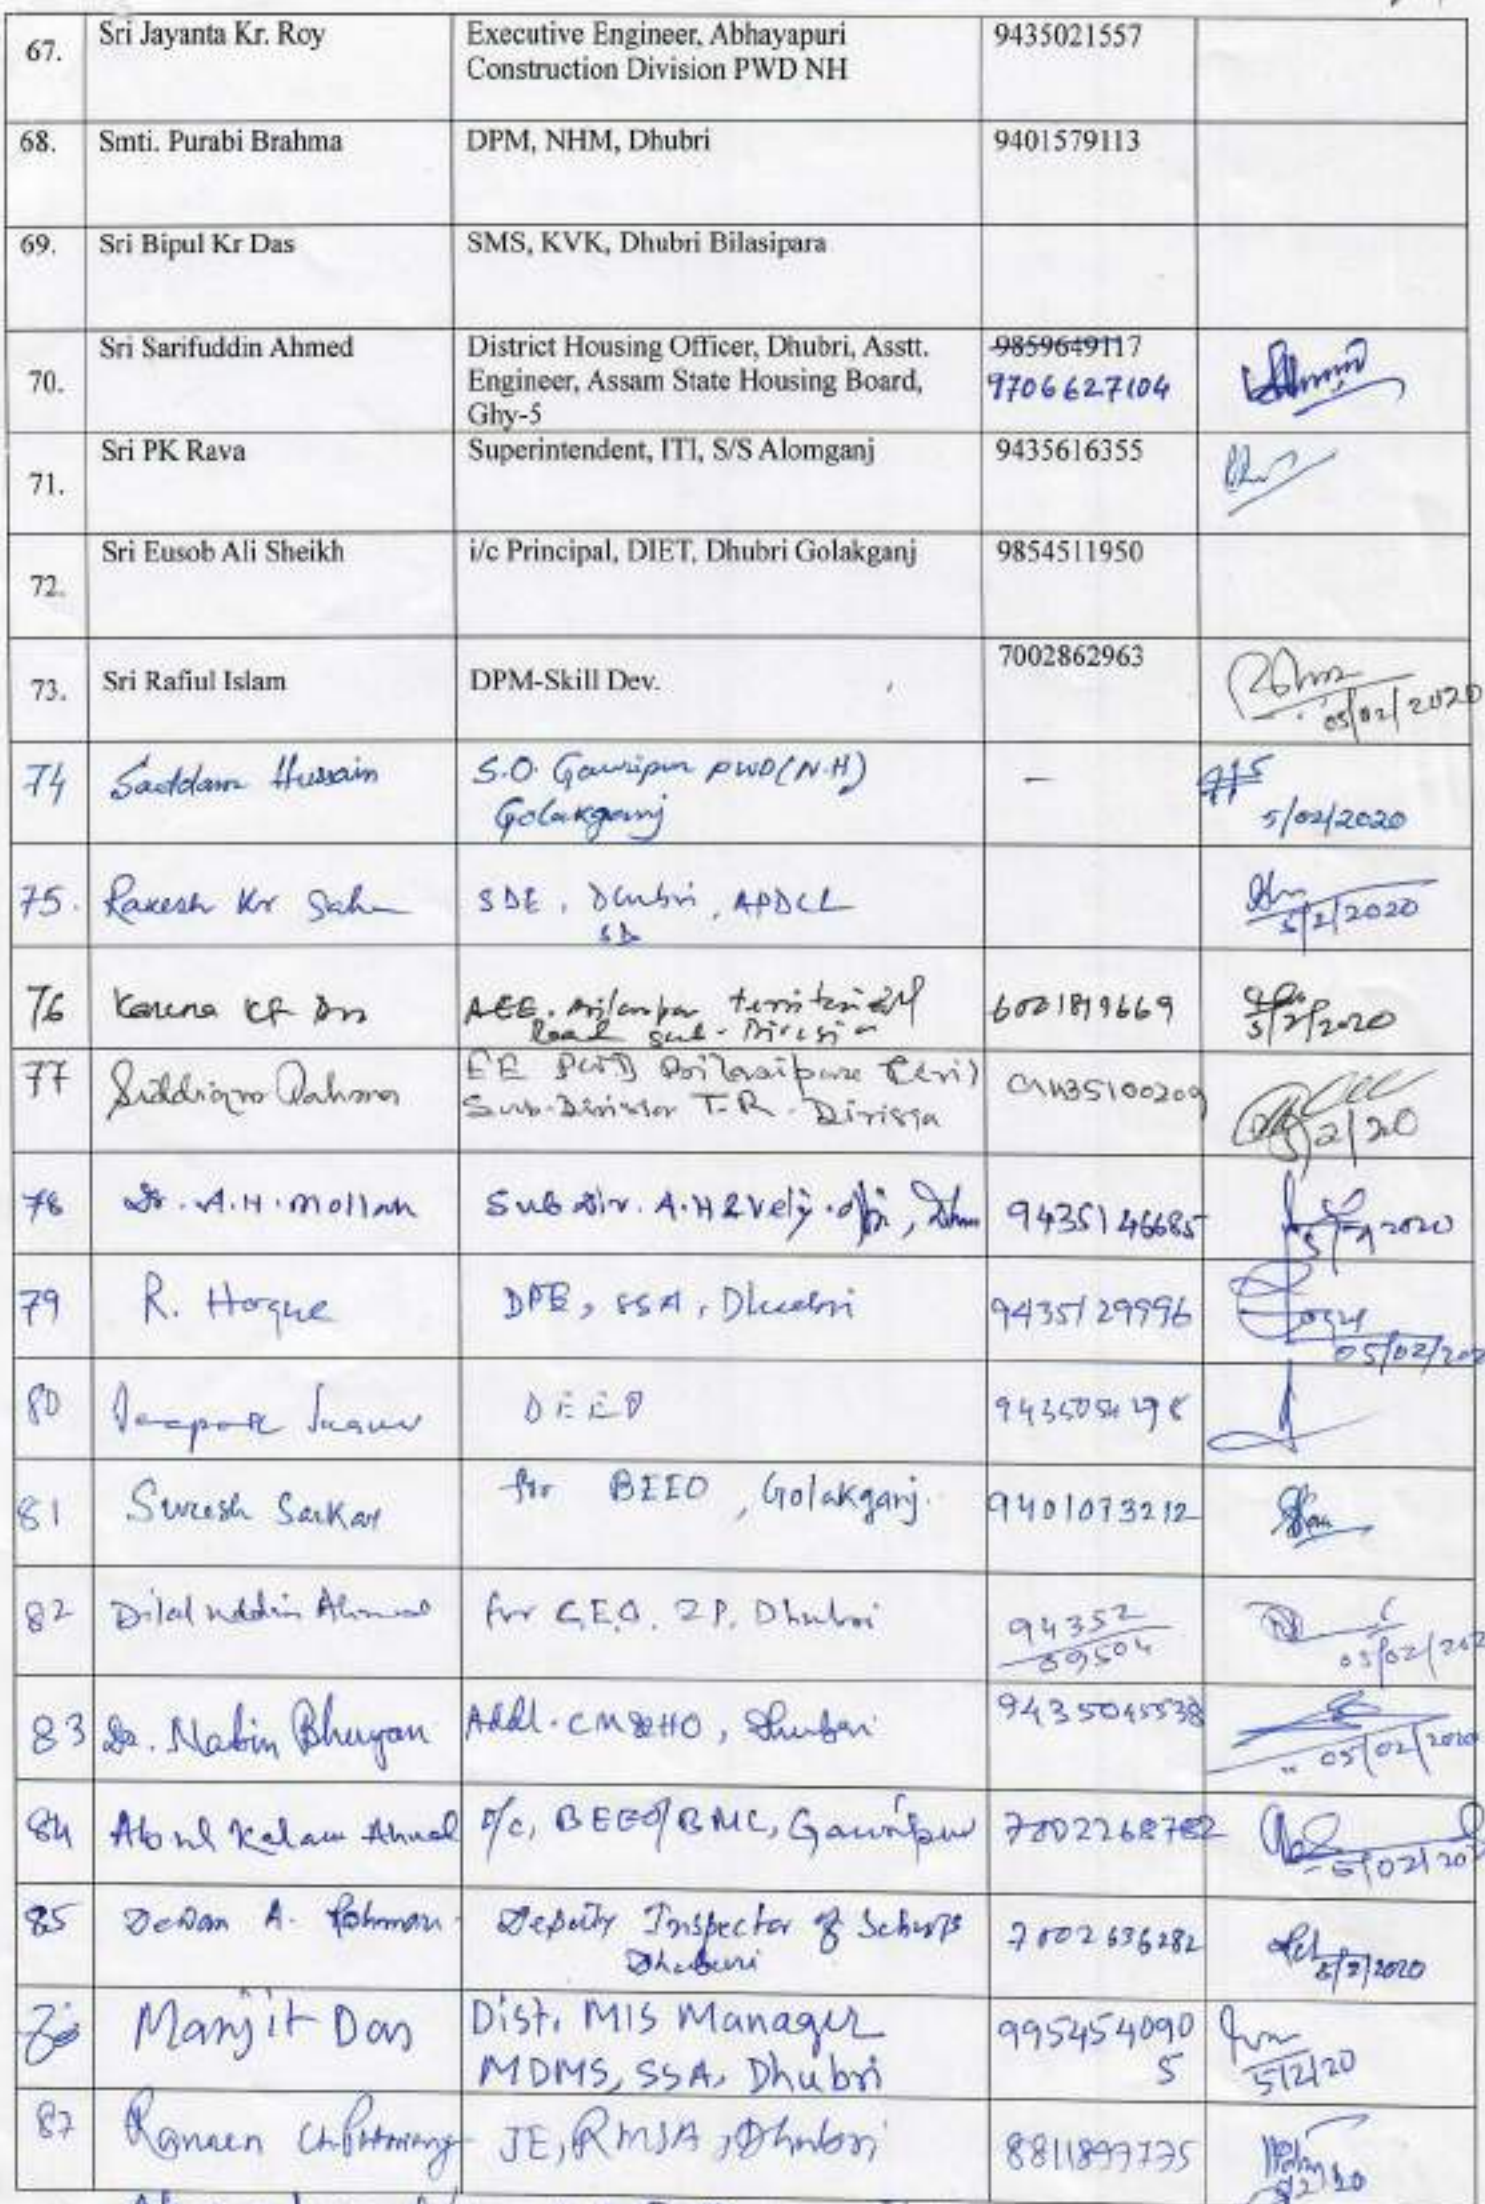 67. Sri Jayanta Kr. Roy Executive Engineer, Abhayapuri 9435021557
Construction Division PWD NH
68. Smti. Purabi Brahma DPM, NHM, Dhubri 9401579113
69. Sri Bipul Kr Das SMS, KVK, Dhubri Bilasipara
70. Sri Sarifuddin Ahmed District Housing Officer, Dhubri, Asstt. 9859649117
Engineer, Assam State Housing Board, 9706627104
Ghy-5
71. Sri PK Rava Superintendent, ITI, S/S Alomganj 9435616355
72. Sri Eusob Ali Sheikh i/c Principal, DIET, Dhubri Golakganj 9854511950
73. Sri Rafiul Islam DPM-Skill Dev. 7002862963
05/02/2020
74 Saddam Hussain S.O. Gauripur PWD (N.H) —
Golakganj 5/02/2020
75. Rakesh Kr Saha SDE, Dhubri, APDCL
SD 5/2/2020
76 AEE. territorial 6001819669
Road Sub-Division 5/2/2020
77 EE PWD 9435100209
Sub-Division T.R. Division 2/20
78 Dr. A.H. Mollah Sub Div. A.H & Vety. 9435146685
2020
79 R. Hoque DPE, SSA, Dhubri 9435129996
05/02/202
80 DEEO
81 Suresh Sarkar for BEEO, Golakganj. 9401073212
82 Dilal uddin Ahmed for C.E.O. Z.P. Dhubri 94352
59504 05/02/202
83 Dr. Nabin Bhuyan Addl. CM&HO, Dhubri 9435045538
05/02/2020
84 Abul Kalam Ahmed I/c, BEEO/BMC, Gauripur 7002268782
5/02/20
85 Dewan A. Rohman Deputy Inspector of Schools 7002636282
Dhuburi 5/2/2020
Manjit Das Dist. MIS Manager 995454090
MDMS, SSA, Dhubri 5 5/2/20
87 JE, RMSA, Dhubri 8811897775
5/2/20